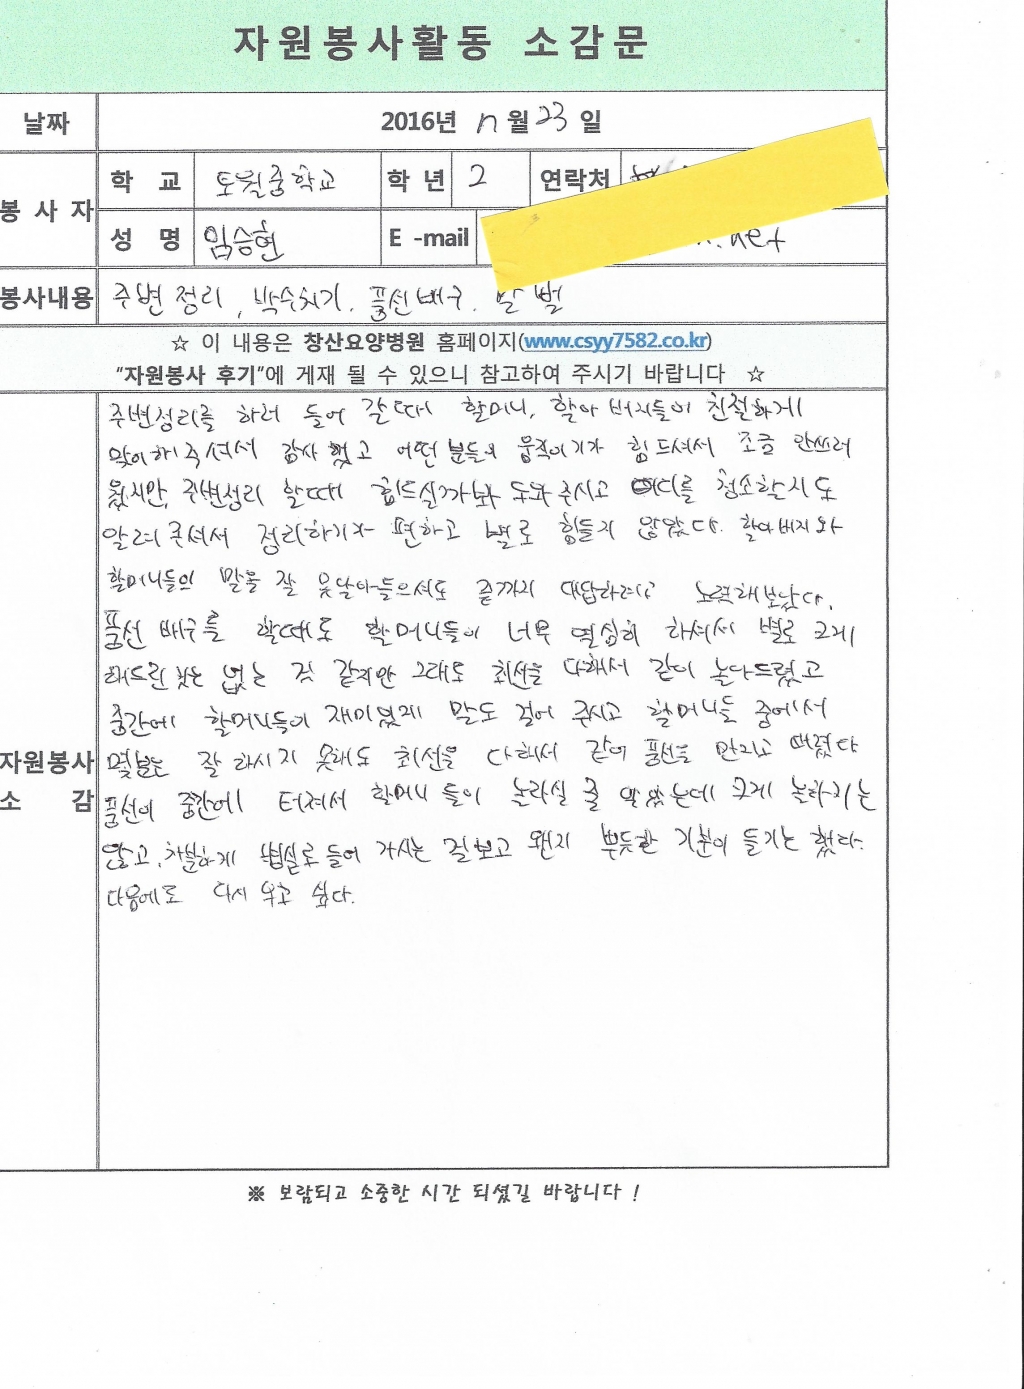 자원봉사활동 소감문
날짜 2016년 n월 23일
봉사자 학교 토월중학교 학년 2 연락처
성명 임승현 E-mail .net
봉사내용 주변정리, 박수치기, 풍선배구,
☆ 이 내용은 창산요양병원 홈페이지(www.csyy7582.co.kr)
"자원봉사 후기"에 게재 될 수 있으니 참고하여 주시기 바랍니다 ☆
자원봉사 소감
주변정리를 하러 들어 갈때 할머니, 할아버지들이 친절하게
맞이해주셔서 감사했고 어떤 분들의 움직이기가 힘드셔서 조금 안쓰러
웠지만, 주변정리 할때 힘드실까봐 도와주시고 어디를 청소할지도
알려주셔서 정리하기가 편하고 별로 힘들지 않았다. 할아버지와
할머니들의 말을 잘 못알아들으셔도 끝까지 대답하려고 노력해보았다.
풍선 배구를 할때도 할머니들이 너무 열심히 하셔서 별로 크게
해드린 것은 없는 것 같지만 그래도 최선을 다해서 같이 놀아드렸고
중간에 할머니들이 재미있게 말도 걸어 주시고 할머니들 중에서
몇분은 잘 하시지 못해도 최선을 다해서 같이 풍선을 만지고 때렸다
풍선이 중간에 터져서 할머니들이 놀라실 줄 알았는데 크게 놀라지는
않고, 차분하게 병실로 들어 가시는 걸보고 왠지 뿌듯한 기분이 들기는 했다.
다음에도 다시 오고 싶다.
※ 보람되고 소중한 시간 되셨길 바랍니다 !